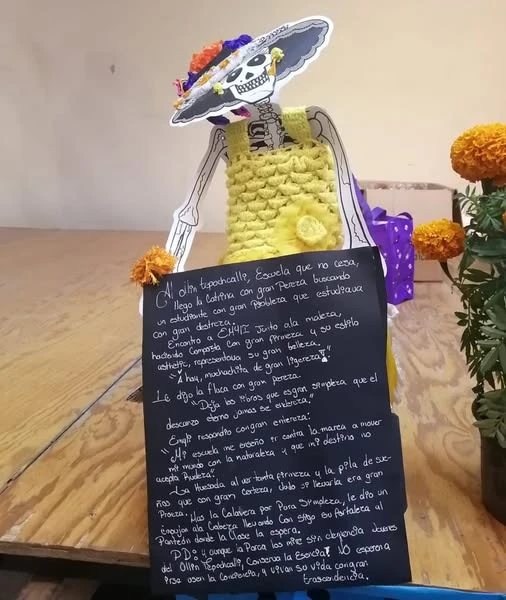 Al ollin tepochcalli, Escuela que no cesa,
llego la Catrina con gran Pereza buscando
un estudiante con gran que estudiava
con gran destreza.
Encontro a Junto a la maleza,
haciendo Composta Con gran firmeza y su estilo
asthetic, representava su gran belleza.
"¡A hay, muchachita de gran ligereza!"
Le dijo la flaca con gran pereza.
"Deja los libros que es gran simpleza que el
descanzo eterno jamas se endereza"
respondio con gran entereza:
"Mi escuela me enseño ir contra la marea a mover
mi mundo con la naturaleza y que mi destino no
acepta Rudeza".
La Huesuda al ver tanta firmeza y la pila de sue-
ños que con gran certeza, dudo si llevarla era gran
Proeza.
Mas la Calavera por Pura Simpleza, le dio un
empujon ala Cabeza llevando Con sigo su fortaleza al
Panteón donde la Clase la espera.
P.D: y aunque la Parca los mire sin clemencia Jovenes
del Ollin Tepochcalli, Conserven la Esencia! NO esperen a
irse usen la Conciencia, y vivan su vida con gran
trascendencia.